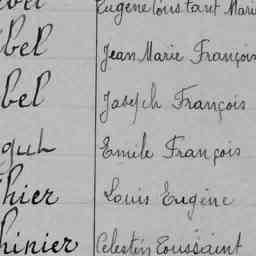 bel Eugène Constant Marie
bel Jean Marie François
bel Joseph François
guh Emile François
hier Louis Eugène
hinier Celestin Toussaint